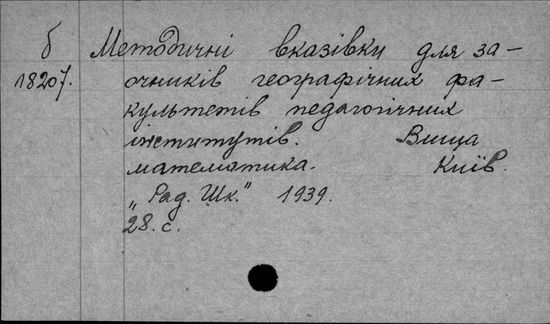 б Методичні вказівки для за-
18207. очників географічних фа-
культетів педагогічних
інститутів. Вища
математика. Київ.
„Рад. Шк." 1939.
28. с.